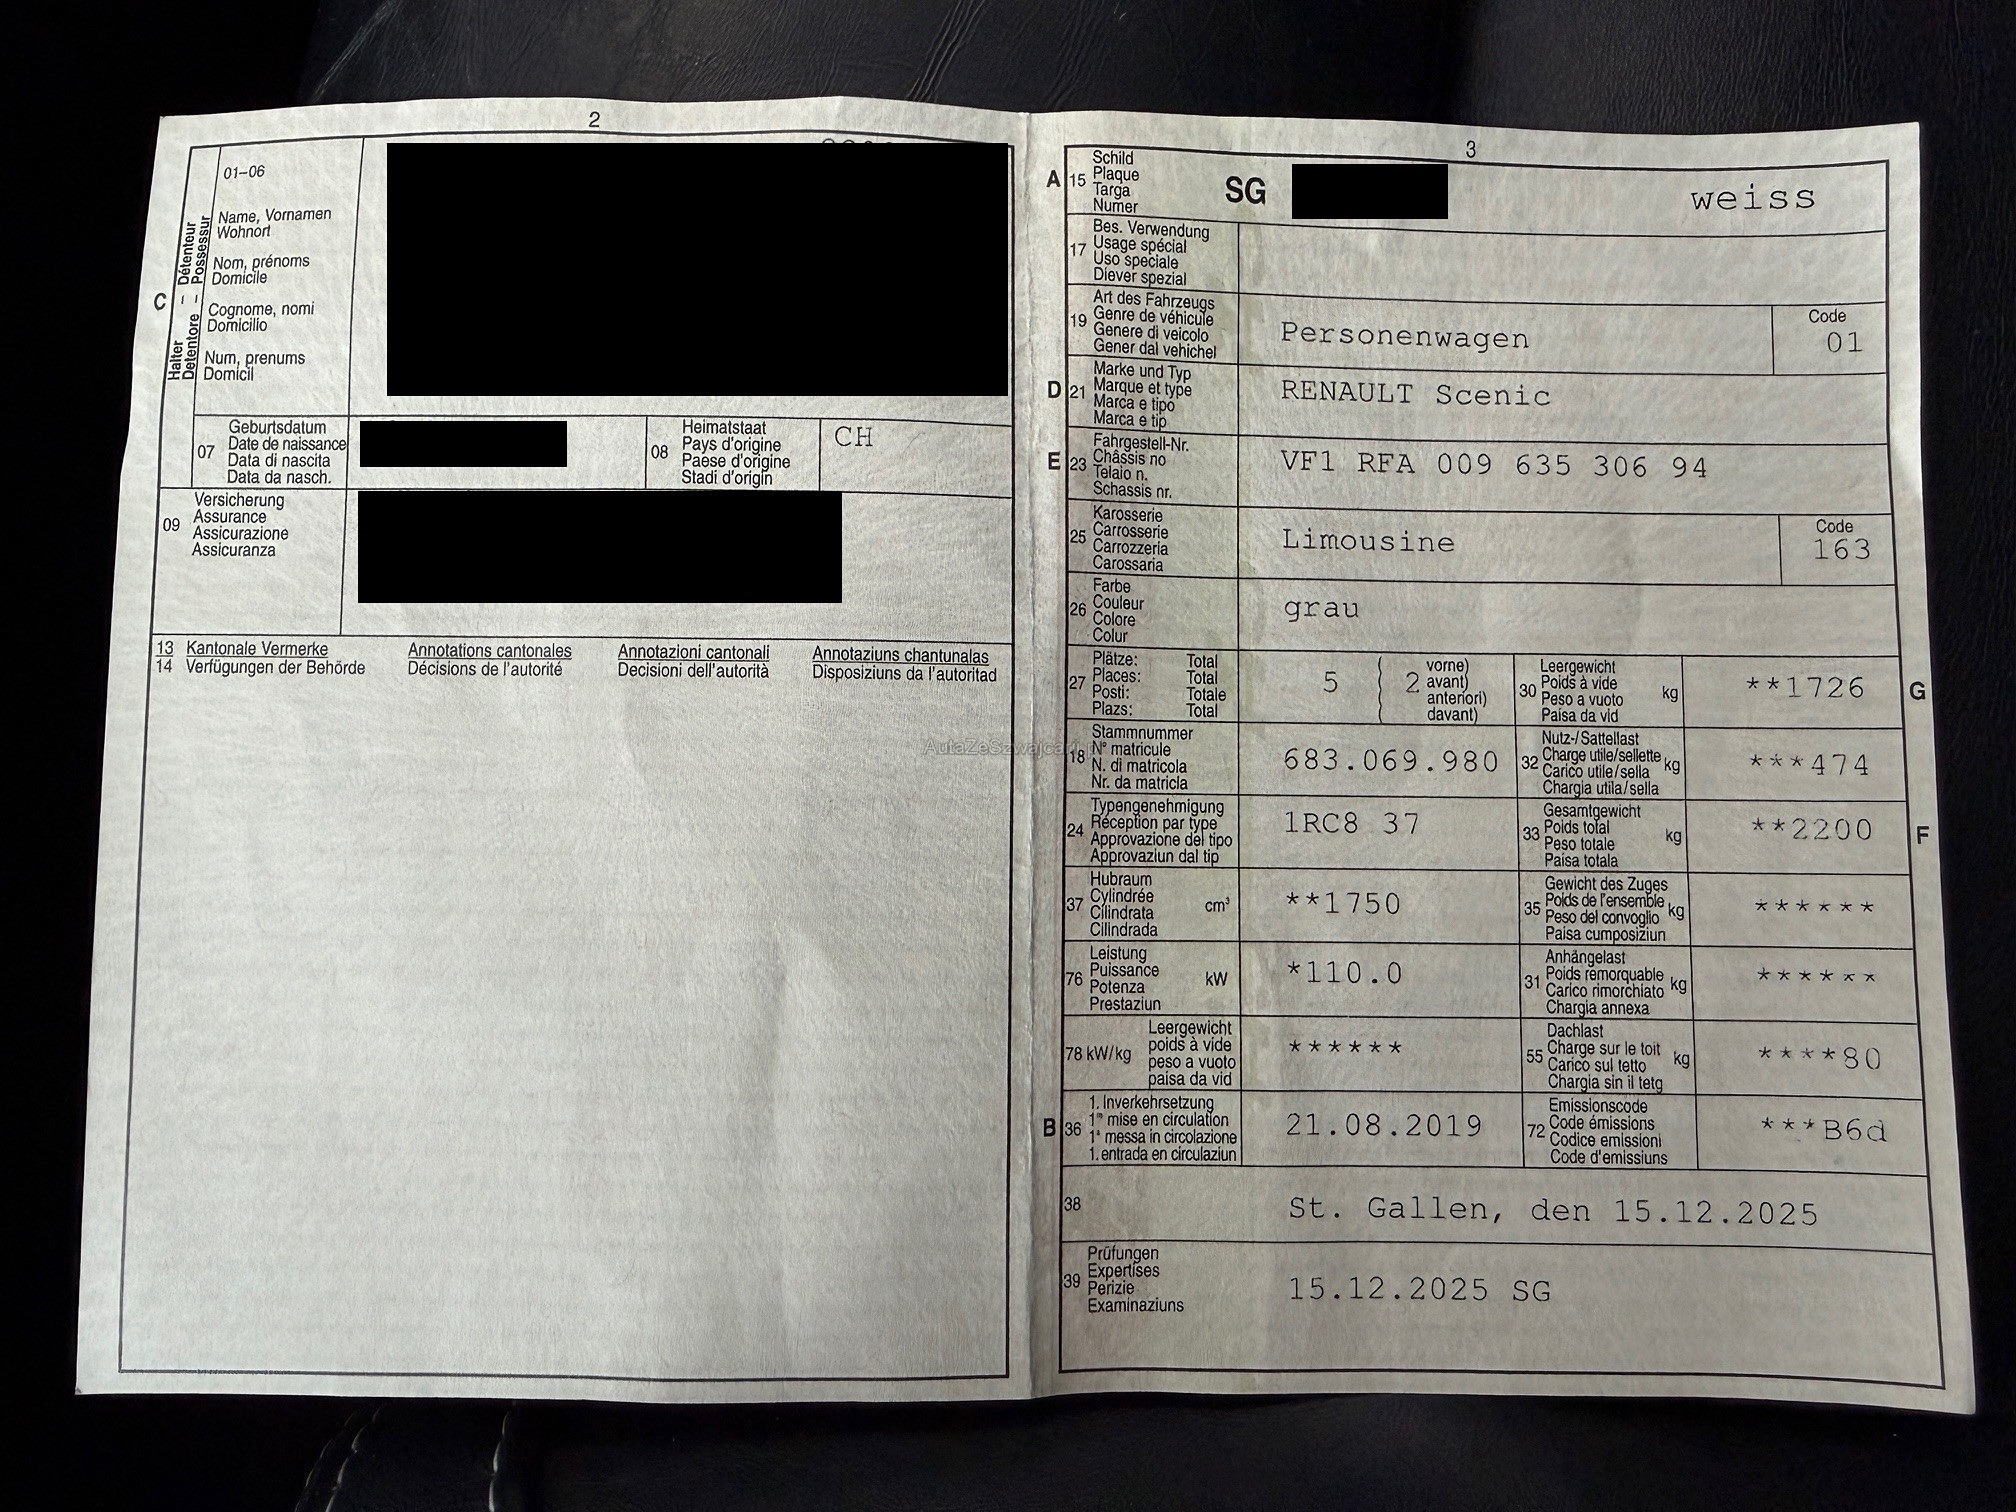 2
01–06
Name, Vornamen
Wohnort
Nom, prénoms
Domicile
Cognome, nomi
Domicilio
Num, prenums
Domicil
C
Halter – Détenteur
Detentore – Possessur
07
Geburtsdatum
Date de naissance
Data di nascita
Data da nasch.
08
Heimatstaat
Pays d'origine
Paese d'origine
Stadi d'origin
CH
09
Versicherung
Assurance
Assicurazione
Assicuranza
13 Kantonale Vermerke Annotations cantonales Annotazioni cantonali Annotaziuns chantunalas
14 Verfügungen der Behörde Décisions de l'autorité Decisioni dell'autorità Disposiziuns da l'autoritad
3
A 15
Schild
Plaque
Targa
Numer
SG
weiss
17
Bes. Verwendung
Usage spécial
Uso speciale
Diever spezial
19
Art des Fahrzeugs
Genre de véhicule
Genere di veicolo
Gener dal vehichel
Personenwagen
Code
01
D 21
Marke und Typ
Marque et type
Marca e tipo
Marca e tip
RENAULT Scenic
E 23
Fahrgestell-Nr.
Châssis no
Telaio n.
Schassis nr.
VF1 RFA 009 635 306 94
25
Karosserie
Carrosserie
Carrozzeria
Carossaria
Limousine
Code
163
26
Farbe
Couleur
Colore
Colur
grau
27
Plätze: Total
Places: Total
Posti: Totale
Plazs: Total
5
( 2
vorne)
avant)
anteriori)
davant)
30
Leergewicht
Poids à vide
Peso a vuoto
Paisa da vid
kg
**1726
G
18
Stammnummer
N° matricule
N. di matricola
Nr. da matricla
683.069.980
32
Nutz-/Sattellast
Charge utile/sellette
Carico utile/sella
Chargia utila/sella
kg
***474
24
Typengenehmigung
Réception par type
Approvazione del tipo
Approvaziun dal tip
1RC8 37
33
Gesamtgewicht
Poids total
Peso totale
Paisa totala
kg
**2200
F
37
Hubraum
Cylindrée
Cilindrata
Cilindrada
cm³
**1750
35
Gewicht des Zuges
Poids de l'ensemble
Peso del convoglio
Paisa cumposiziun
kg
******
76
Leistung
Puissance
Potenza
Prestaziun
kW
*110.0
31
Anhängelast
Poids remorquable
Carico rimorchiato
Chargia annexa
kg
******
78 kW/kg
Leergewicht
poids à vide
peso a vuoto
paisa da vid
******
55
Dachlast
Charge sur le toit
Carico sul tetto
Chargia sin il tetg
kg
****80
B 36
1. Inverkehrsetzung
1re mise en circulation
1a messa in circolazione
1. entrada en circulaziun
21.08.2019
72
Emissionscode
Code émissions
Codice emissioni
Code d'emissiuns
***B6d
38
St. Gallen, den 15.12.2025
39
Prüfungen
Expertises
Perizie
Examinaziuns
15.12.2025 SG